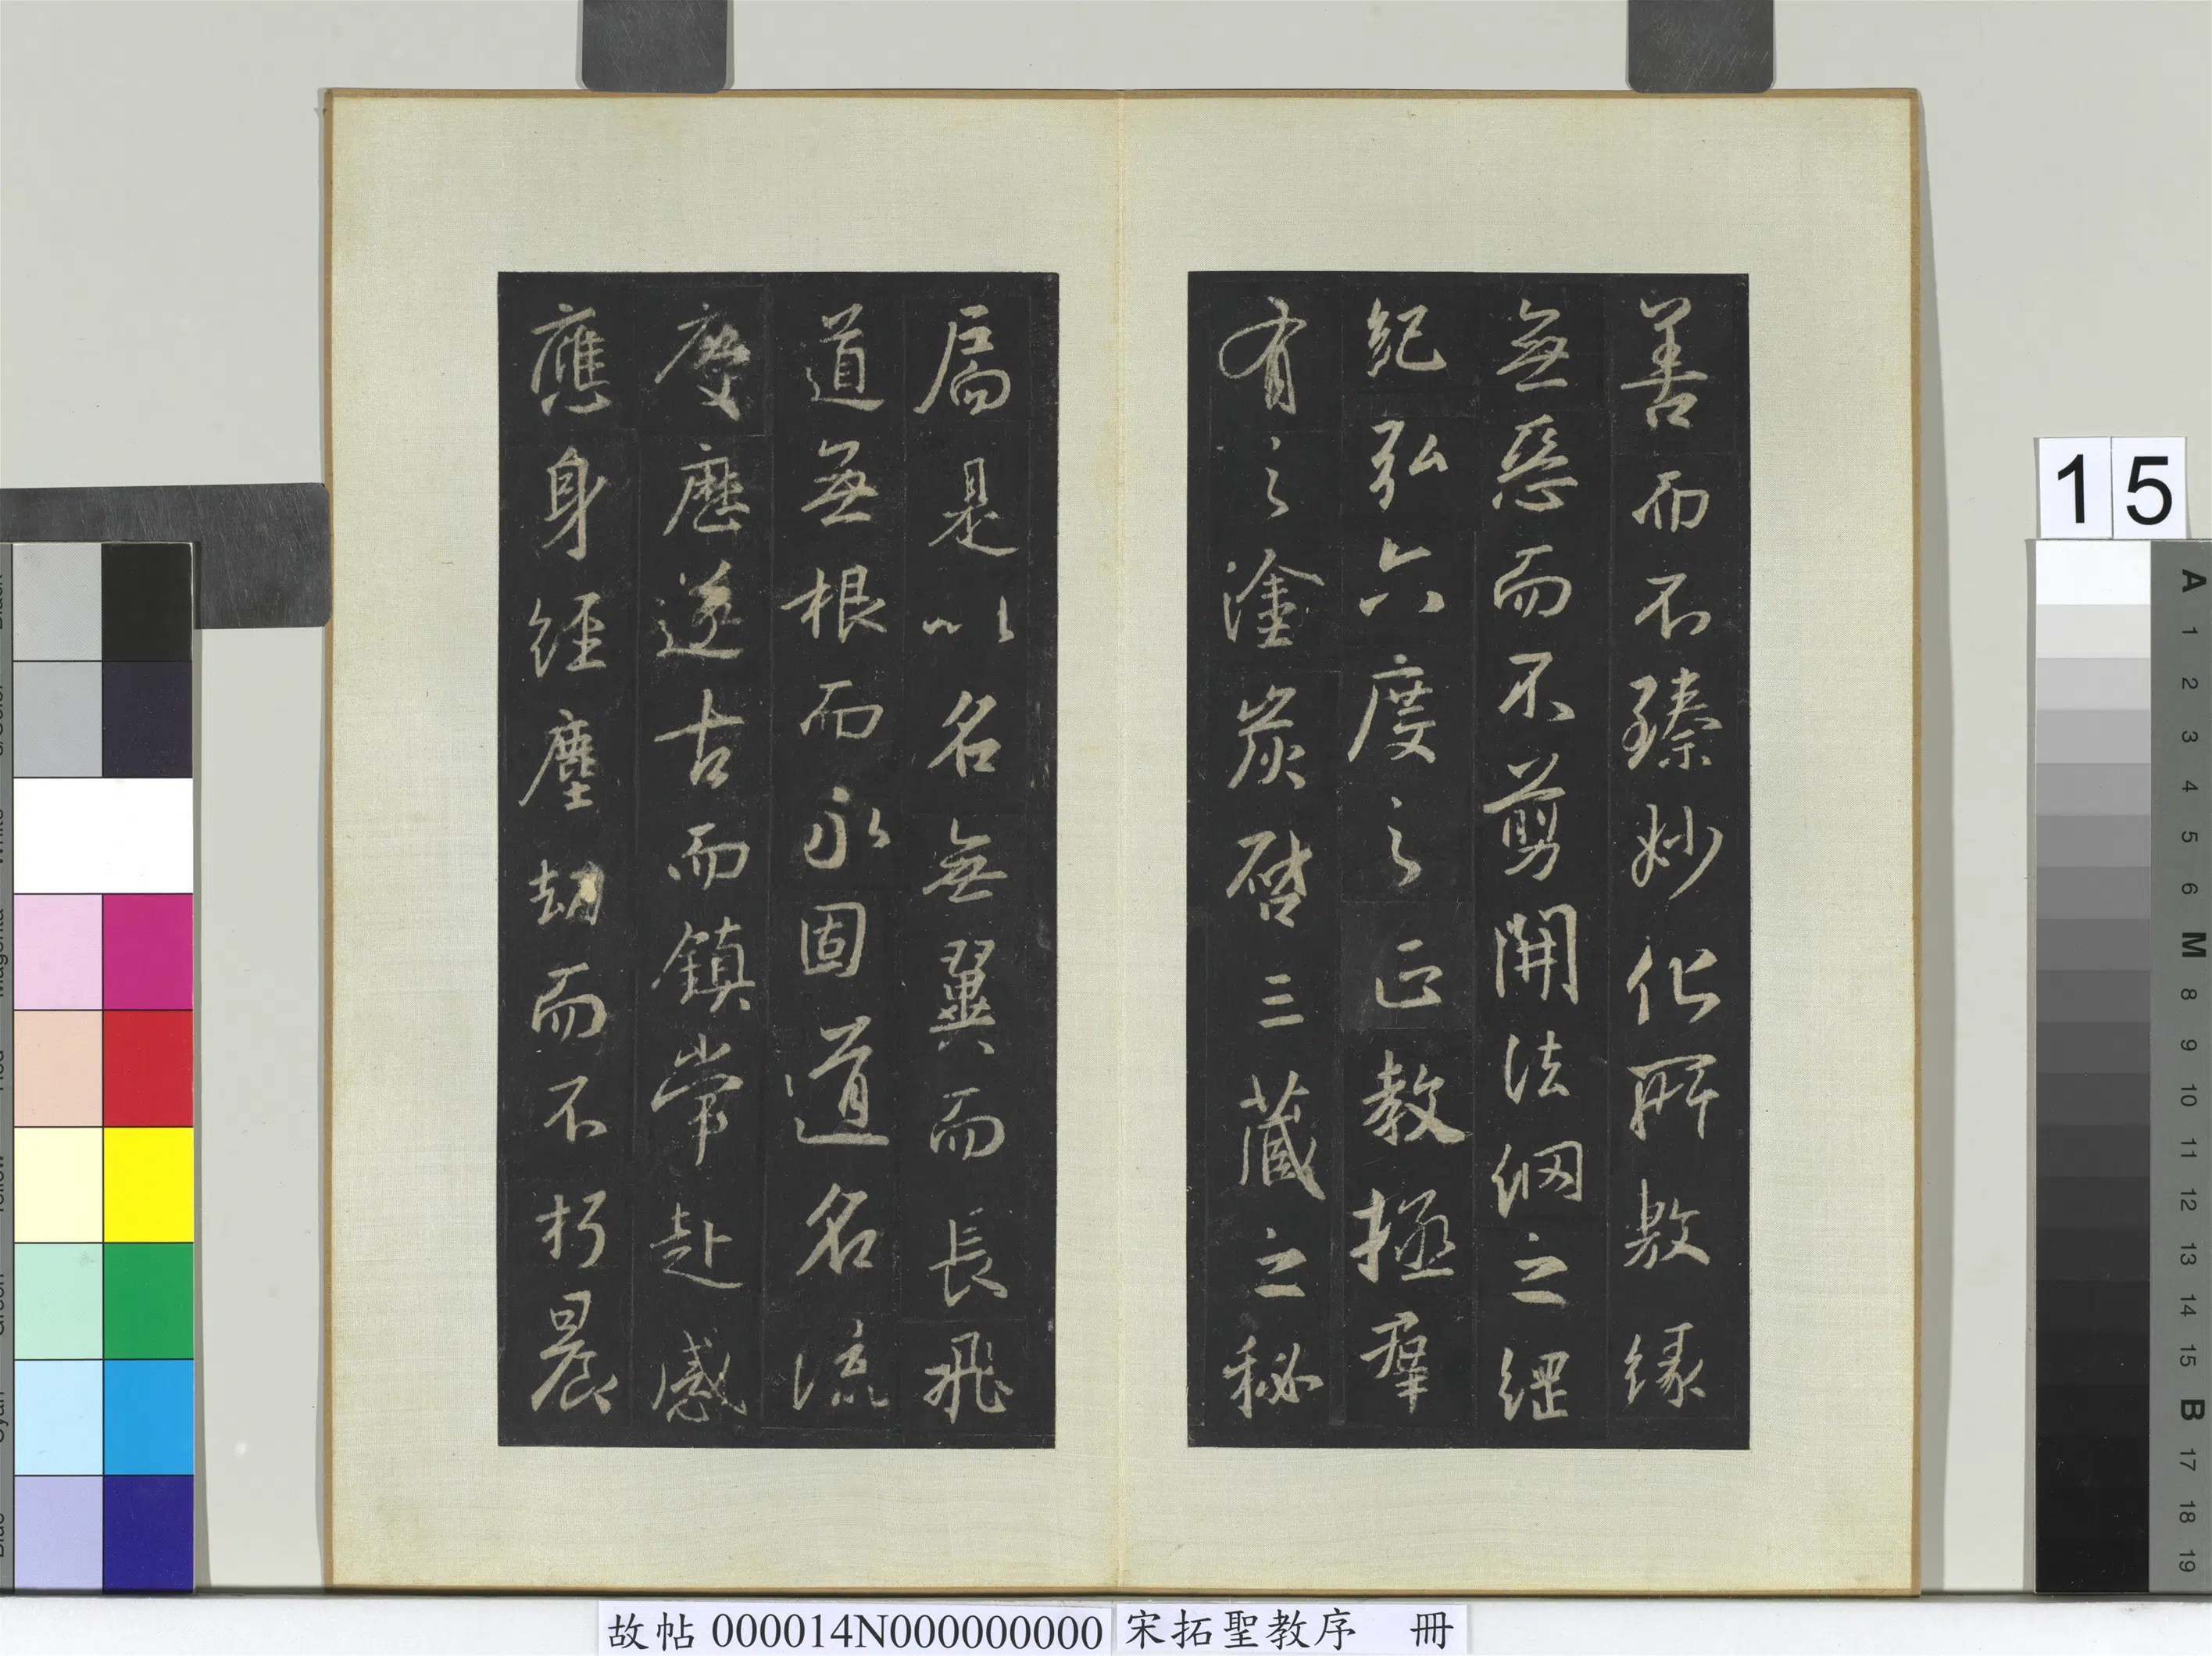 善而不臻妙化所敷緣
無惡而不剪開法網之綱
紀弘六度之正教拯羣
有之塗炭啓三藏之秘
扃是以名無翼而長飛
道無根而永固道名流
慶歷遂古而鎮常赴感
應身經塵劫而不朽晨
15
A 1 2 3 4 5 6 M 8 9 10 11 12 13 14 15 B 17 18 19
故帖 000014N000000000 宋拓聖教序 冊